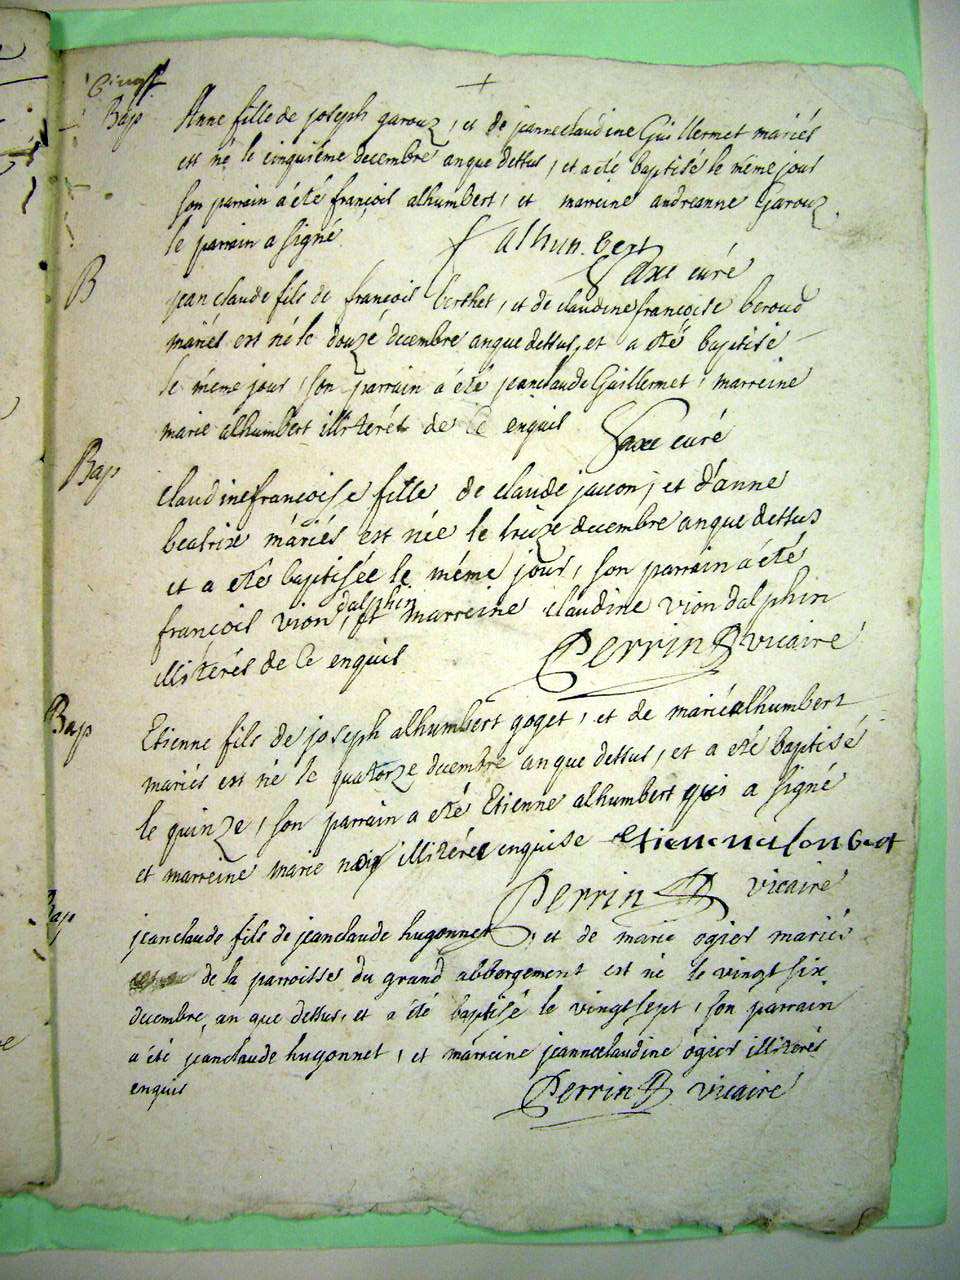 vingt
Bap
Anne fille de joseph garouz, et de jeanneclaudine Guillermet mariés
est né le cinquiéme decembre anque dessus, et a été baptisé le méme jour
son parrain a été françois alhumbert, et mareine andreanne Garouz.
le parrain a signé
f alhunbert
Saxe curé
B
jean claude fils de francois berthet, et de claudinefrançoise beroud
mariés est né le douzé decembre anque dessus, et a été baptisé
le méme jour, son parrain a été jeanclaude Guillermet, marreine
marie alhumbert illiterét de ce enquis
Saxe curé
Bap
claudinefrançoise fille de claude jaccon, et d'anne
beatrix máriés est née le treize decembre anque dessus
et a eté baptisée le méme jour, son parrain a été
françois vion dalphin, et marreine claudine vion dalphin
illiterés de ce enquis
Perrin vicaire
Bap
Etienne fils de joseph alhumbert goget, et de marie alhumbert
mariés est né le quatorze decembre an que dessus, et a eté baptisé
le quinze, son parrain a eté Etienne alhumbert qui a signé
et marreine marie illiterée enquise etienne alonbert
Perrin vicaire
Bap
jeanclaude fils de jeanclaude hugonnet, et de marie ogier mariés
de la parroisses du grand abbergement est né le vingt six
decembre, an que dessus, et a été baptisé le vingtsept, son parrain
a été jeanclaude hugonnet, et marreine jeanneclaudine ogier illiterés
enquis
Perrin vicaire